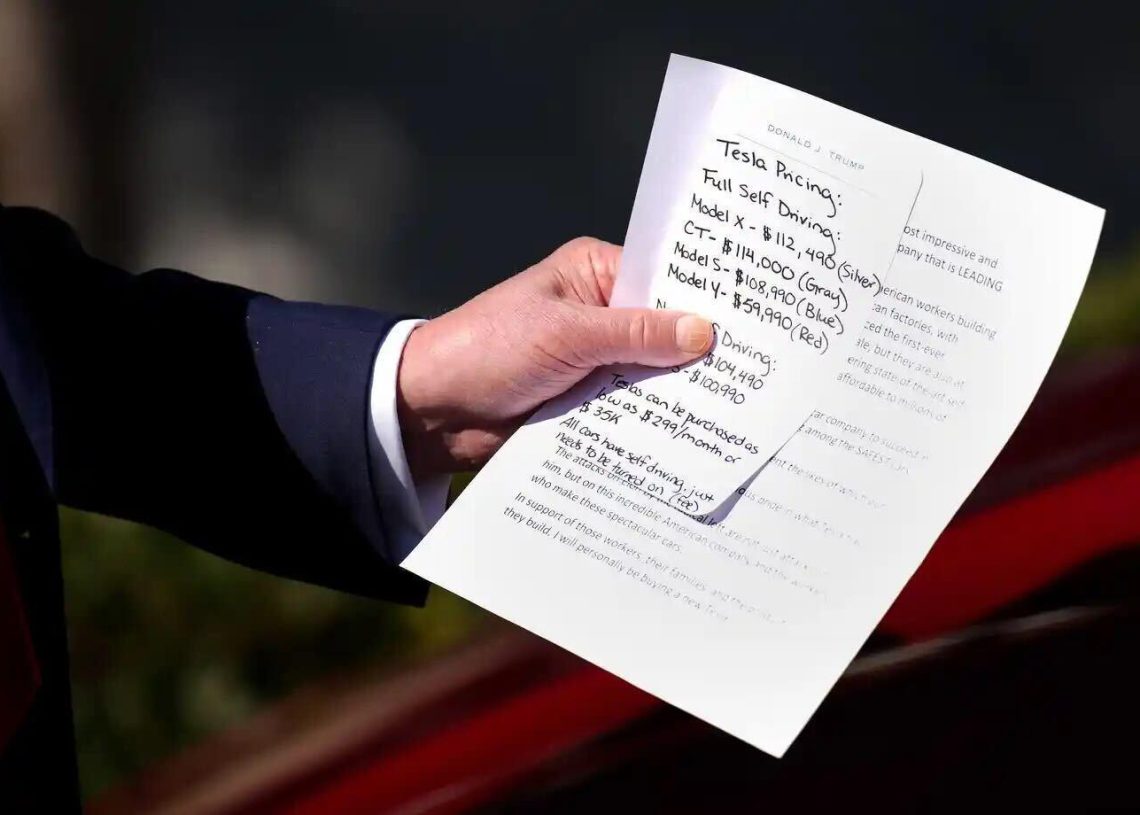 DONALD J. TRUMP
Tesla Pricing:
Full Self Driving:
Model X - $112,490 (Silver)
CT - $114,000 (Gray)
Model S - $108,990 (Blue)
Model Y - $59,990 (Red)
Driving:
$104,490
- $100,990
Teslas can be purchased as
low as $299/month or
$35K
All cars have self driving, just
needs to be turned on (fee)
ost impressive and
pany that is LEADING
erican workers building
can factories, with
ced the first-ever
ale, but they are also at
ering state-of-the-art self
affordable to millions of
ar company to succeed in
among the SAFEST cars
ent the likes of which our
The attacks on are not just attacks on
him, but on this incredible American company, and the workers
who make these spectacular cars.
In support of those workers, their families, and the product
they build, I will personally be buying a new Tesla